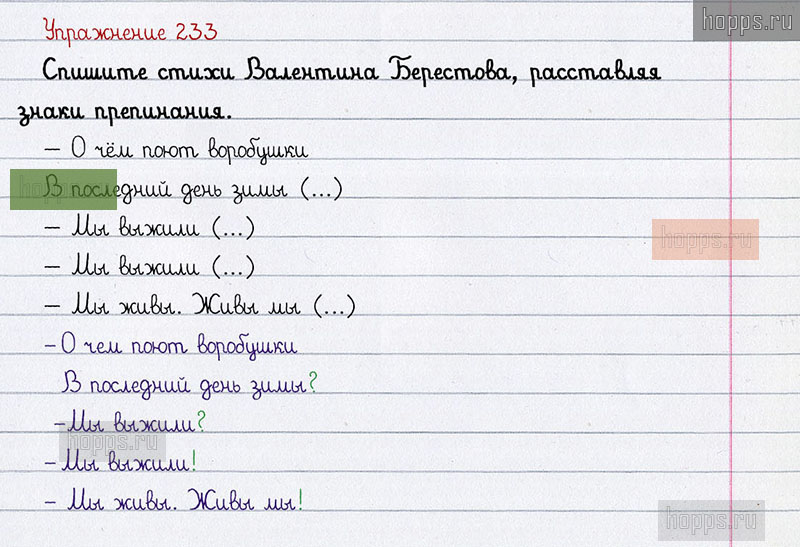 hopps.ru
Упражнение 233
Спишите стихи Валентина Берестова, расставляя
знаки препинания.
– О чём поют воробушки
В последний день зимы (...)
– Мы выжили (...)
– Мы выжили (...)
– Мы живы. Живы мы (...)
– О чем поют воробушки
В последний день зимы?
– Мы выжили?
– Мы выжили!
– Мы живы. Живы мы!
hopps.ru
hopps.ru
hopps.ru
hopps.ru